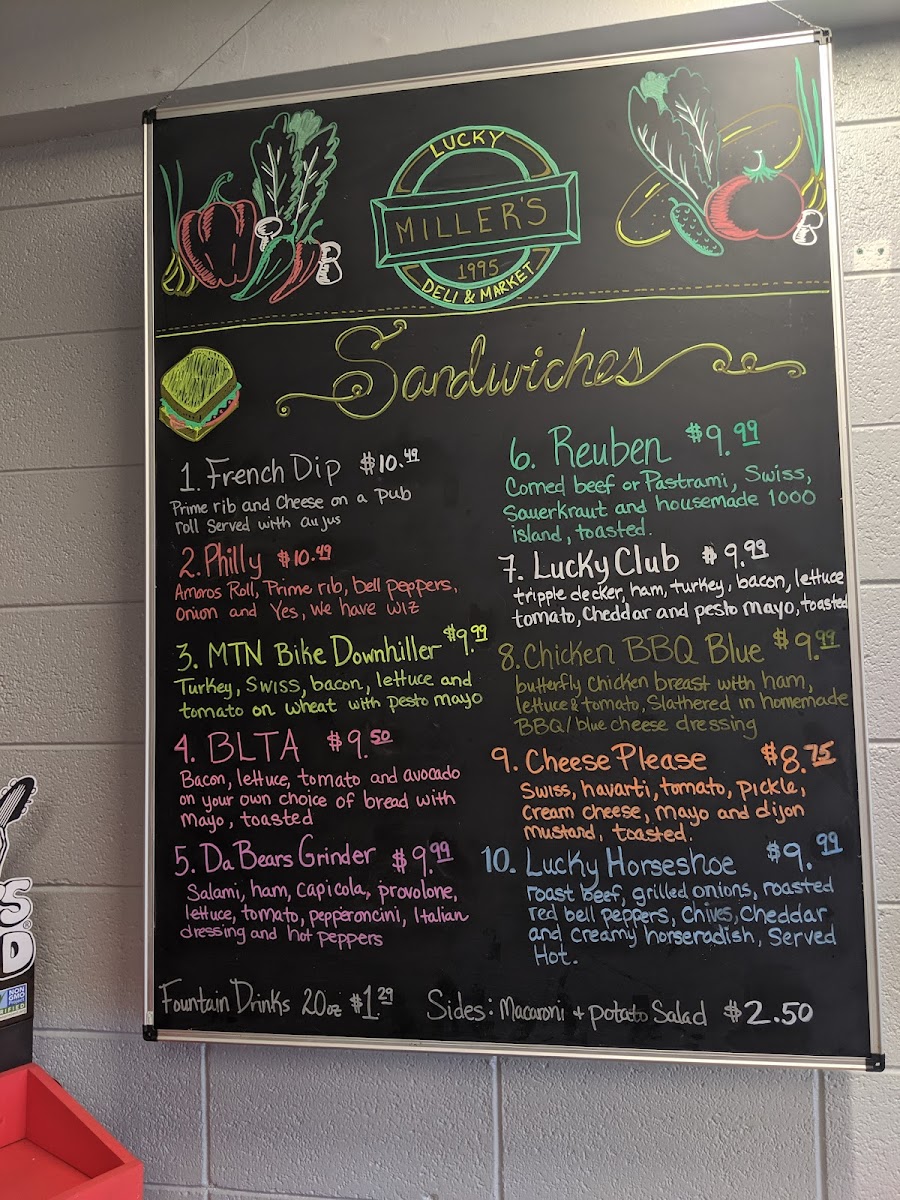 LUCKY
MILLER'S
1995
DELI & MARKET
Sandwiches
1. French Dip $10.49
Prime rib and Cheese on a pub
roll Served with aujus
2. Philly $10.49
Amoros Roll, Prime rib, bell peppers,
onion and Yes, we have wiz
3. MTN Bike Downhiller $9.99
Turkey, Swiss, bacon, lettuce and
tomato on wheat with pesto mayo
4. BLTA $9.50
Bacon, lettuce, tomato and avocado
on your own choice of bread with
Mayo, toasted
5. Da Bears Grinder $9.99
Salami, ham, capicola, provolone,
lettuce, tomato, pepperoncini, Italian
dressing and hot peppers
6. Reuben $9.99
Corned beef or Pastrami, Swiss,
Sauerkraut and housemade 1000
island, toasted.
7. Lucky Club $9.99
tripple decker, ham, turkey, bacon, lettuce
tomato, Cheddar and pesto mayo, toasted
8. Chicken BBQ Blue $9.99
butterfly chicken breast with ham,
lettuce & tomato, Slathered in homemade
BBQ/blue cheese dressing
9. Cheese Please $8.75
Swiss, havarti, tomato, pickle,
cream cheese, mayo and dijon
mustard, toasted.
10. Lucky Horseshoe $9.99
roast beef, grilled onions, roasted
red bell peppers, Chives, Cheddar
and creamy horseradish, Served
Hot.
Fountain Drinks 20oz $1.29
Sides: Macaroni + potato Salad $2.50
S
D
NON
GMO